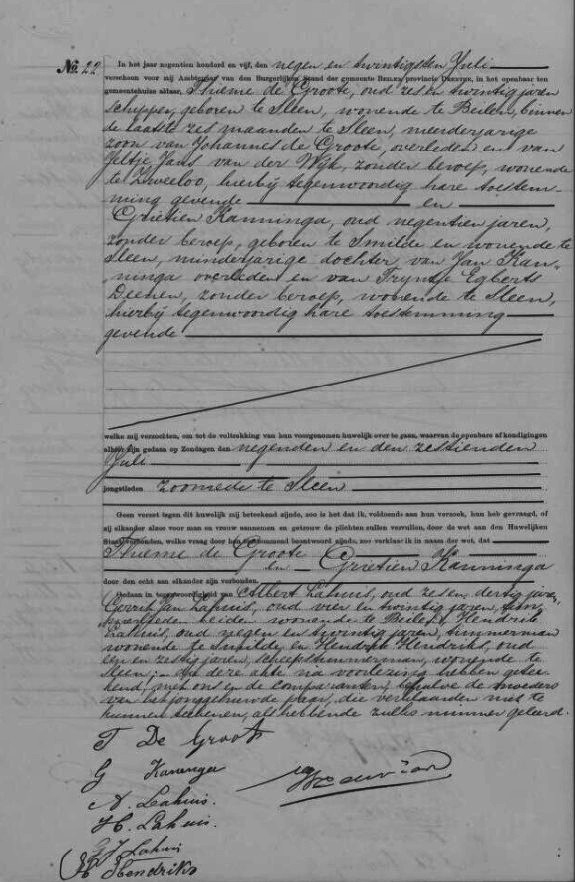 No. 22
In het jaar negentien honderd en vijf, den negen en twintigsten Juli
verscheen voor mij Ambtenaar van den Burgerlijken Stand der gemeente Beilen, provincie Drenthe, in het openbaar ten
gemeentehuize aldaar, Thieme de Groote, oud zes en twintig jaren
schipper, geboren te Sleen, wonende te Beilen, binnen
de laatste zes maanden te Sleen, meerderjarige
zoon van Johannes de Groote, overleden en van
Jeltje Jans van der Wijk, zonder beroep, wonende
te Zweeloo, hierbij tegenwoordig hare toestem-
ming gevende en
Grietien Kanninga, oud negentien jaren,
zonder beroep, geboren te Smilde en wonende te
Sleen, minderjarige dochter van Jan Kan-
ninga overleden en van Tryntje Egberts
Deenen, zonder beroep, wonende te Sleen,
hierbij tegenwoordig hare toestemming
gevende
welke mij verzochten, om tot de voltrekking van hun voorgenomen huwelijk over te gaan, waarvan de openbare afkondigingen
alhier zijn gedaan op Zondagen den negenden en den zestienden
Juli
jongstleden zoomede te Sleen
Geen verzet tegen dit huwelijk mij beteekend zijnde, zoo is het dat ik, voldoende aan hun verzoek, hun heb gevraagd, of
zij elkander alzoo voor man en vrouw aannemen en getrouw de plichten zullen vervullen, door de wet aan den Huwelijken
Staat verbonden, welke vraag door hen toestemmend beantwoord zijnde, zoo verklaar ik in naam der wet, dat
Thieme de Groote
en Grietien Kanninga
door den echt aan elkander zijn verbonden.
Gedaan in tegenwoordigheid van Albert Lahuis, oud zes en dertig jaren,
Gerrit Jan Lahuis, oud vier en twintig jaren,
beiden wonende te Beilen, Hendrik
Lahuis, oud negen en twintig jaren, timmerman
wonende te Smilde, en Hendrik Hendriks, oud
en zestig jaren, scheepstimmerman, wonende te
Sleen; En deze akte na voorlezing hebben getee-
kend, met ons en de comparanten, behalve de moeders
van het jonggehuwde paar, die verklaarden niet te
kunnen teekenen, als hebbende zulks nimmer geleerd.
T De Groote
G Kanenga
A. Lahuis.
H. Lahuis.
G J Lahuis
H Hendriks